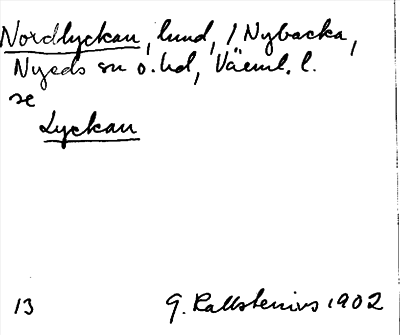 Nordlyckan, lund, / Nybacka,
Nyeds sn o. hd, Värml. l.
se
Lyckan
13 G. Kallstenius 1902